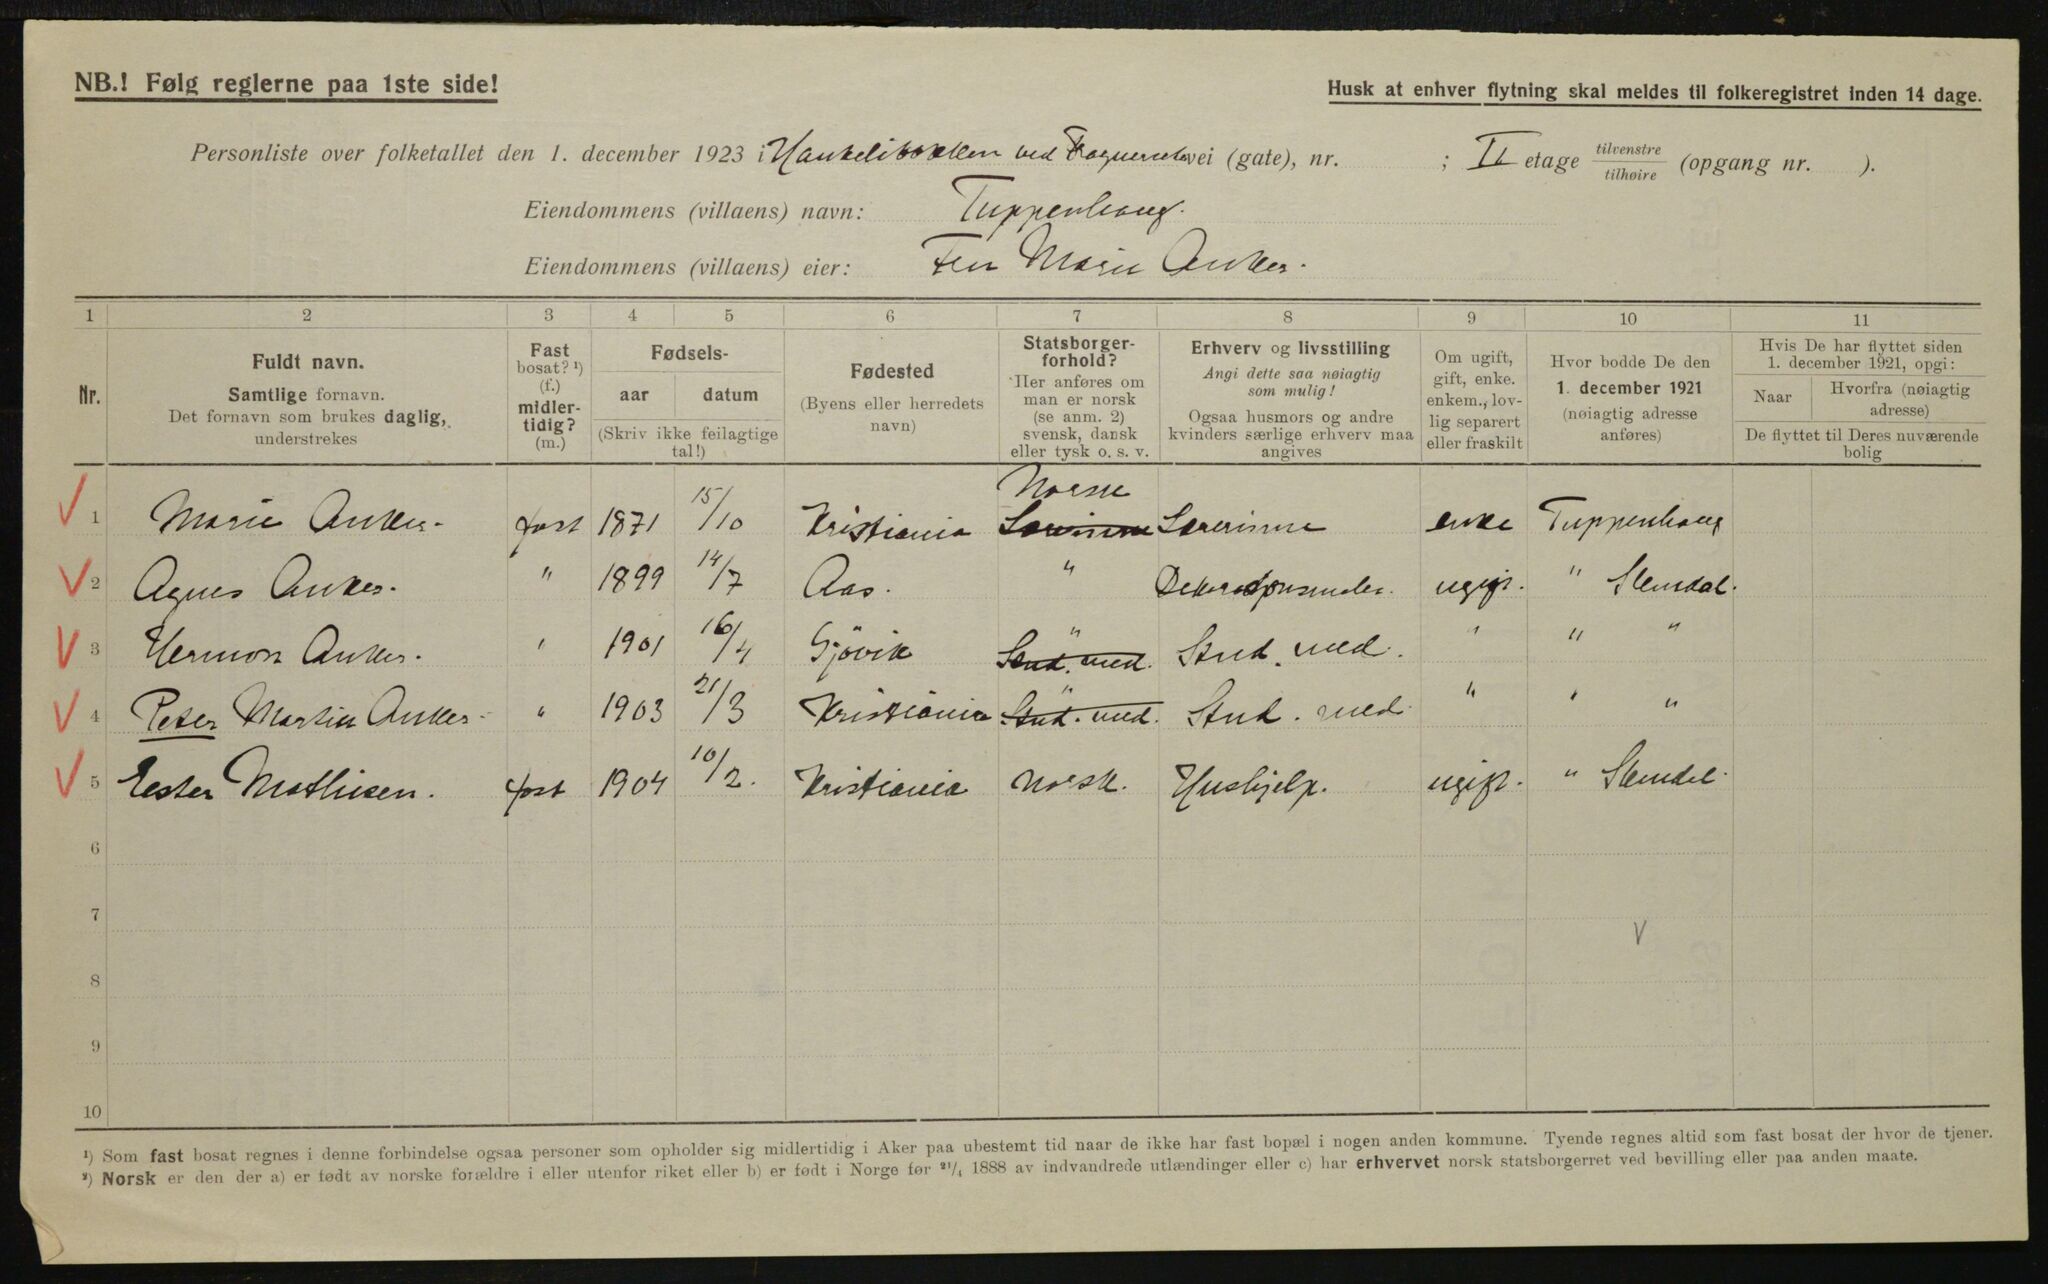 NB.! Følg reglerne paa 1ste side!
Husk at enhver flytning skal meldes til folkeregistret inden 14 dage.
Personliste over folketallet den 1. december 1923 i ved vei (gate), nr. ; II etage tilvenstre / tilhøire (opgang nr. ).
Eiendommens (villaens) navn: Tuppenhaug.
Eiendommens (villaens) eier: Fru Marie Anker.
1 2 3 4 5 6 7 8 9 10 11
Nr.
Fuldt navn.
Samtlige fornavn.
Det fornavn som brukes daglig,
understrekes
Fast
bosat? ¹)
(f.)
midler-
tidig?
(m.)
Fødsels-
aar datum
(Skriv ikke feilagtige
tal!)
Fødested
(Byens eller herredets
navn)
Statsborger-
forhold?
Her anføres om
man er norsk
(se anm. 2)
svensk, dansk
eller tysk o. s. v.
Erhverv og livsstilling
Angi dette saa nøiagtig
som mulig!
Ogsaa husmors og andre
kvinders særlige erhverv maa
angives
Om ugift,
gift, enke.
enkem., lov-
lig separert
eller fraskilt
Hvor bodde De den
1. december 1921
(nøiagtig adresse
anføres)
Hvis De har flyttet siden
1. december 1921, opgi:
Naar Hvorfra (nøiagtig
adresse)
De flyttet til Deres nuværende
bolig
1 Marie Anker. fast 1871 15/10 Kristiania Norsk Lærerinne Lærerinne enke Tuppenhaug
2 Agnes Anker. " 1899 14/7 Aas. " ugift. " Slemdal.
3 Herman Anker. " 1901 16/4 Gjövik " Stud. med. Stud. med. " " "
4 Peter Martin Anker " 1903 21/3 Kristiania " Stud. med. Stud. med. " " "
5 Ester Mathisen. fast 1904 10/2. Kristiania Norsk. Hushjelp. ugift. " Slemdal.
6
7
8
9
10
¹) Som fast bosat regnes i denne forbindelse ogsaa personer som opholder sig midlertidig i Aker paa ubestemt tid naar de ikke har fast bopæl i nogen anden kommune. Tyende regnes altid som fast bosat der hvor de tjener.
²) Norsk er den der a) er født av norske forældre i eller utenfor riket eller b) er født i Norge før ²¹/₄ 1888 av indvandrede utlændinger eller c) har erhvervet norsk statsborgerret ved bevilling eller paa anden maate.